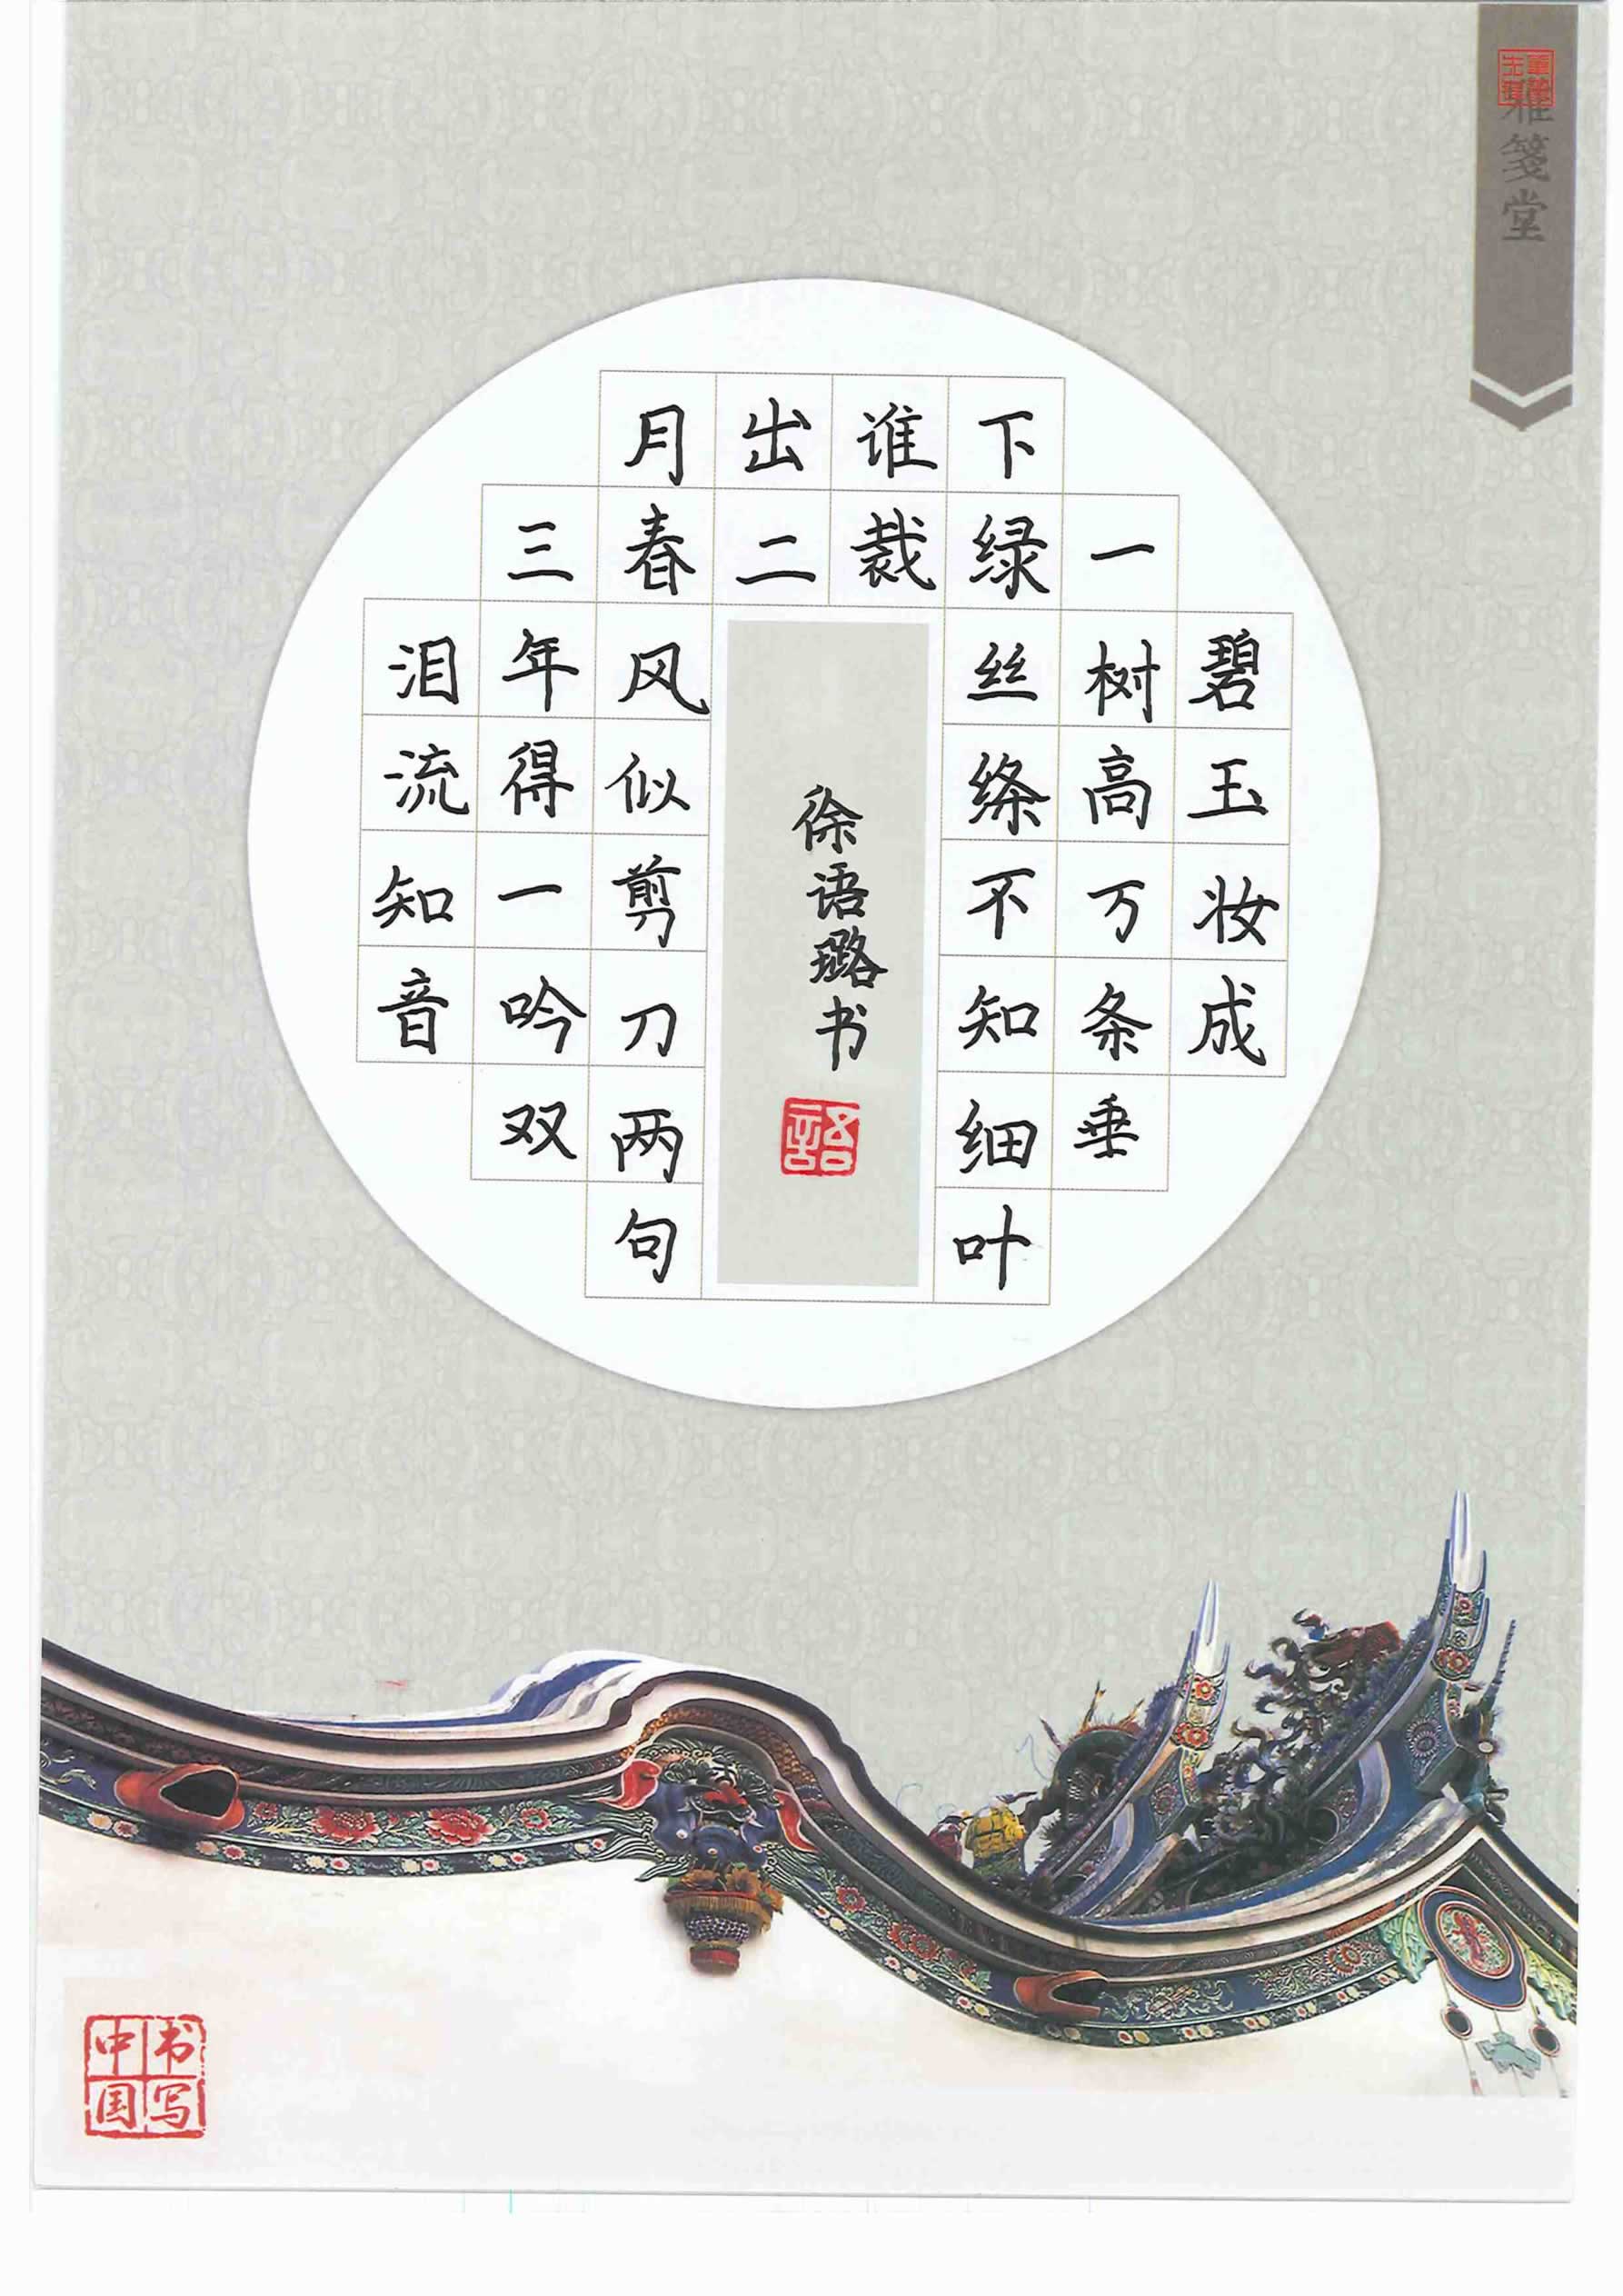 雅笺堂
碧玉妆成
一树高万条垂
下绿丝绦不知细叶
谁裁
出二
月春风似剪刀两句
三年得一吟双
泪流知音
徐语璐书
語
书写
中国